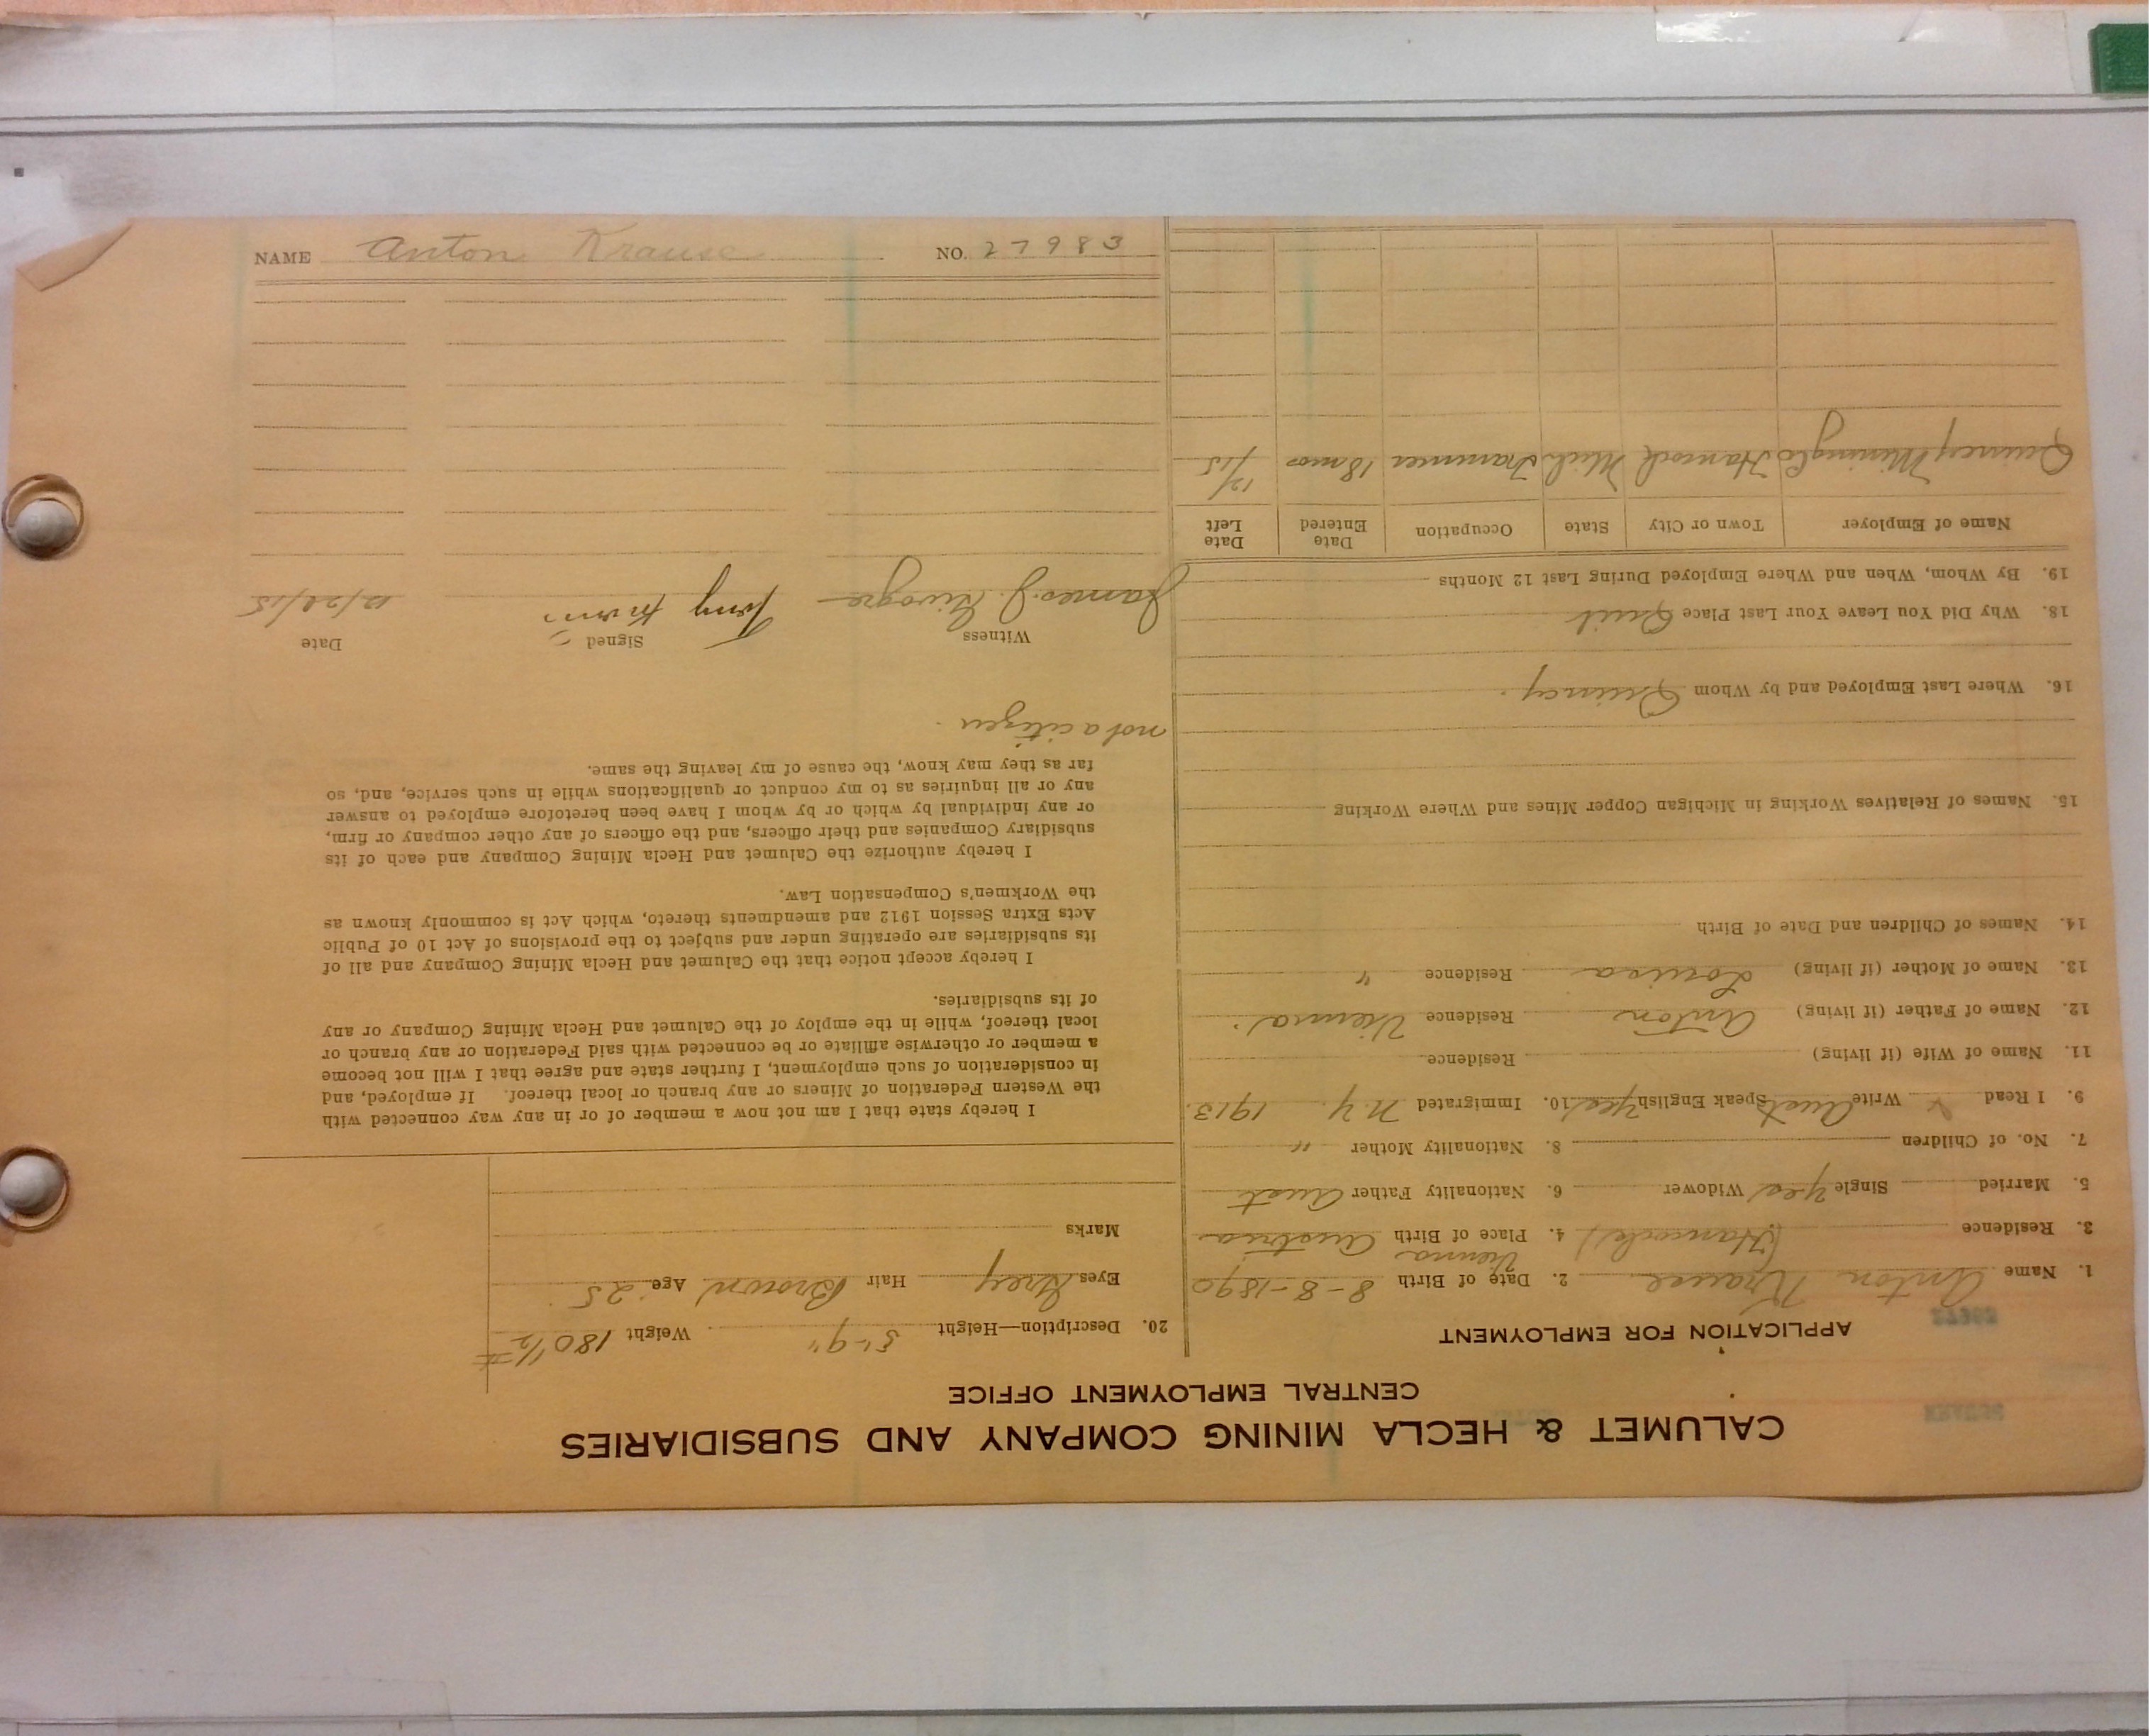 NAME Anton Krause NO. 27983
CALUMET & HECLA MINING COMPANY AND SUBSIDIARIES
CENTRAL EMPLOYMENT OFFICE
APPLICATION FOR EMPLOYMENT
1. Name Anton Krause 2. Date of Birth 8-8-1890
Vienna
3. Residence (Hancock) 4. Place of Birth Austria
5. Married Single Yes Widower 6. Nationality Father Aust
7. No. of Children 8. Nationality Mother "
9. I Read Write Aust Speak English Yes 10. Immigrated N.Y. 1913.
11. Name of Wife (if living) Residence
12. Name of Father (if living) Anton Residence Vienna.
13. Name of Mother (if living) Louisa Residence "
14. Names of Children and Date of Birth
15. Names of Relatives Working in Michigan Copper Mines and Where Working
16. Where Last Employed and by Whom Quincy.
18. Why Did You Leave Your Last Place Quit
19. By Whom, When and Where Employed During Last 12 Months
Name of Employer Town or City State Occupation Date Entered Date Left
Quincy Mining Co Hancock Mich Trammer 18 mos 12/15
20. Description—Height 5'-9" Weight 180 1/2 #
Eyes Grey Hair Brown Age 25
Marks
I hereby state that I am not now a member of or in any way connected with
the Western Federation of Miners or any branch or local thereof. If employed, and
in consideration of such employment, I further state and agree that I will not become
a member or otherwise affiliate or be connected with said Federation or any branch or
local thereof, while in the employ of the Calumet and Hecla Mining Company or any
of its subsidiaries.
I hereby accept notice that the Calumet and Hecla Mining Company and all of
its subsidiaries are operating under and subject to the provisions of Act 10 of Public
Acts Extra Session 1912 and amendments thereto, which Act is commonly known as
the Workmen's Compensation Law.
I hereby authorize the Calumet and Hecla Mining Company and each of its
subsidiary Companies and their officers, and the officers of any other company or firm,
or any individual by which or by whom I have been heretofore employed to answer
any or all inquiries as to my conduct or qualifications while in such service, and, so
far as they may know, the cause of my leaving the same.
not a citizen.
Witness Signed Date
James J. Tony 12/28/15